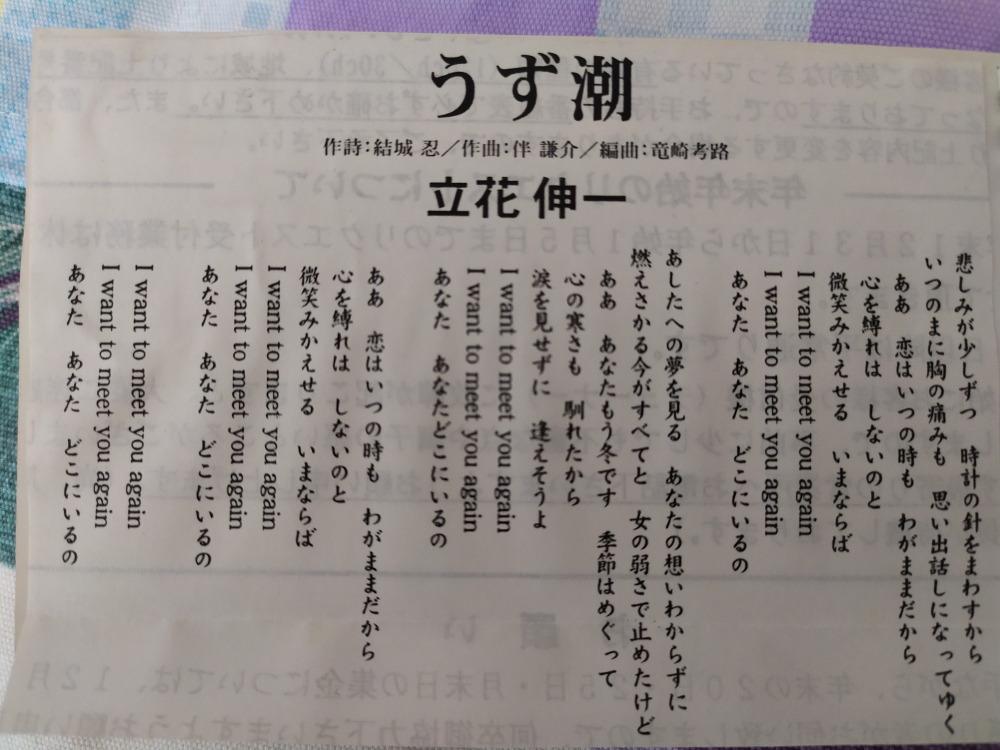 うず潮
作詩:結城 忍／作曲:伴 謙介／編曲:竜崎考路
立花 伸一
悲しみが少しずつ　時計の針をまわすから
いつのまに胸の痛みも　思い出話しになってゆく
ああ　恋はいつの時も　わがままだから
心を縛れは　しないのと
微笑みかえせる　いまならば
I want to meet you again
I want to meet you again
あなた　あなた　どこにいるの
あしたへの夢を見る　あなたの想いわからずに
燃えさかる今がすべてと　女の弱さで止めたけど
ああ　あなたもう冬です　季節はめぐって
心の寒さも　馴れたから
涙を見せずに　逢えそうよ
I want to meet you again
I want to meet you again
あなた　あなたどこにいるの
ああ　恋はいつの時も　わがままだから
心を縛れは　しないのと
微笑みかえせる　いまならば
I want to meet you again
I want to meet you again
あなた　あなた　どこにいるの
I want to meet you again
I want to meet you again
あなた　あなた　どこにいるの